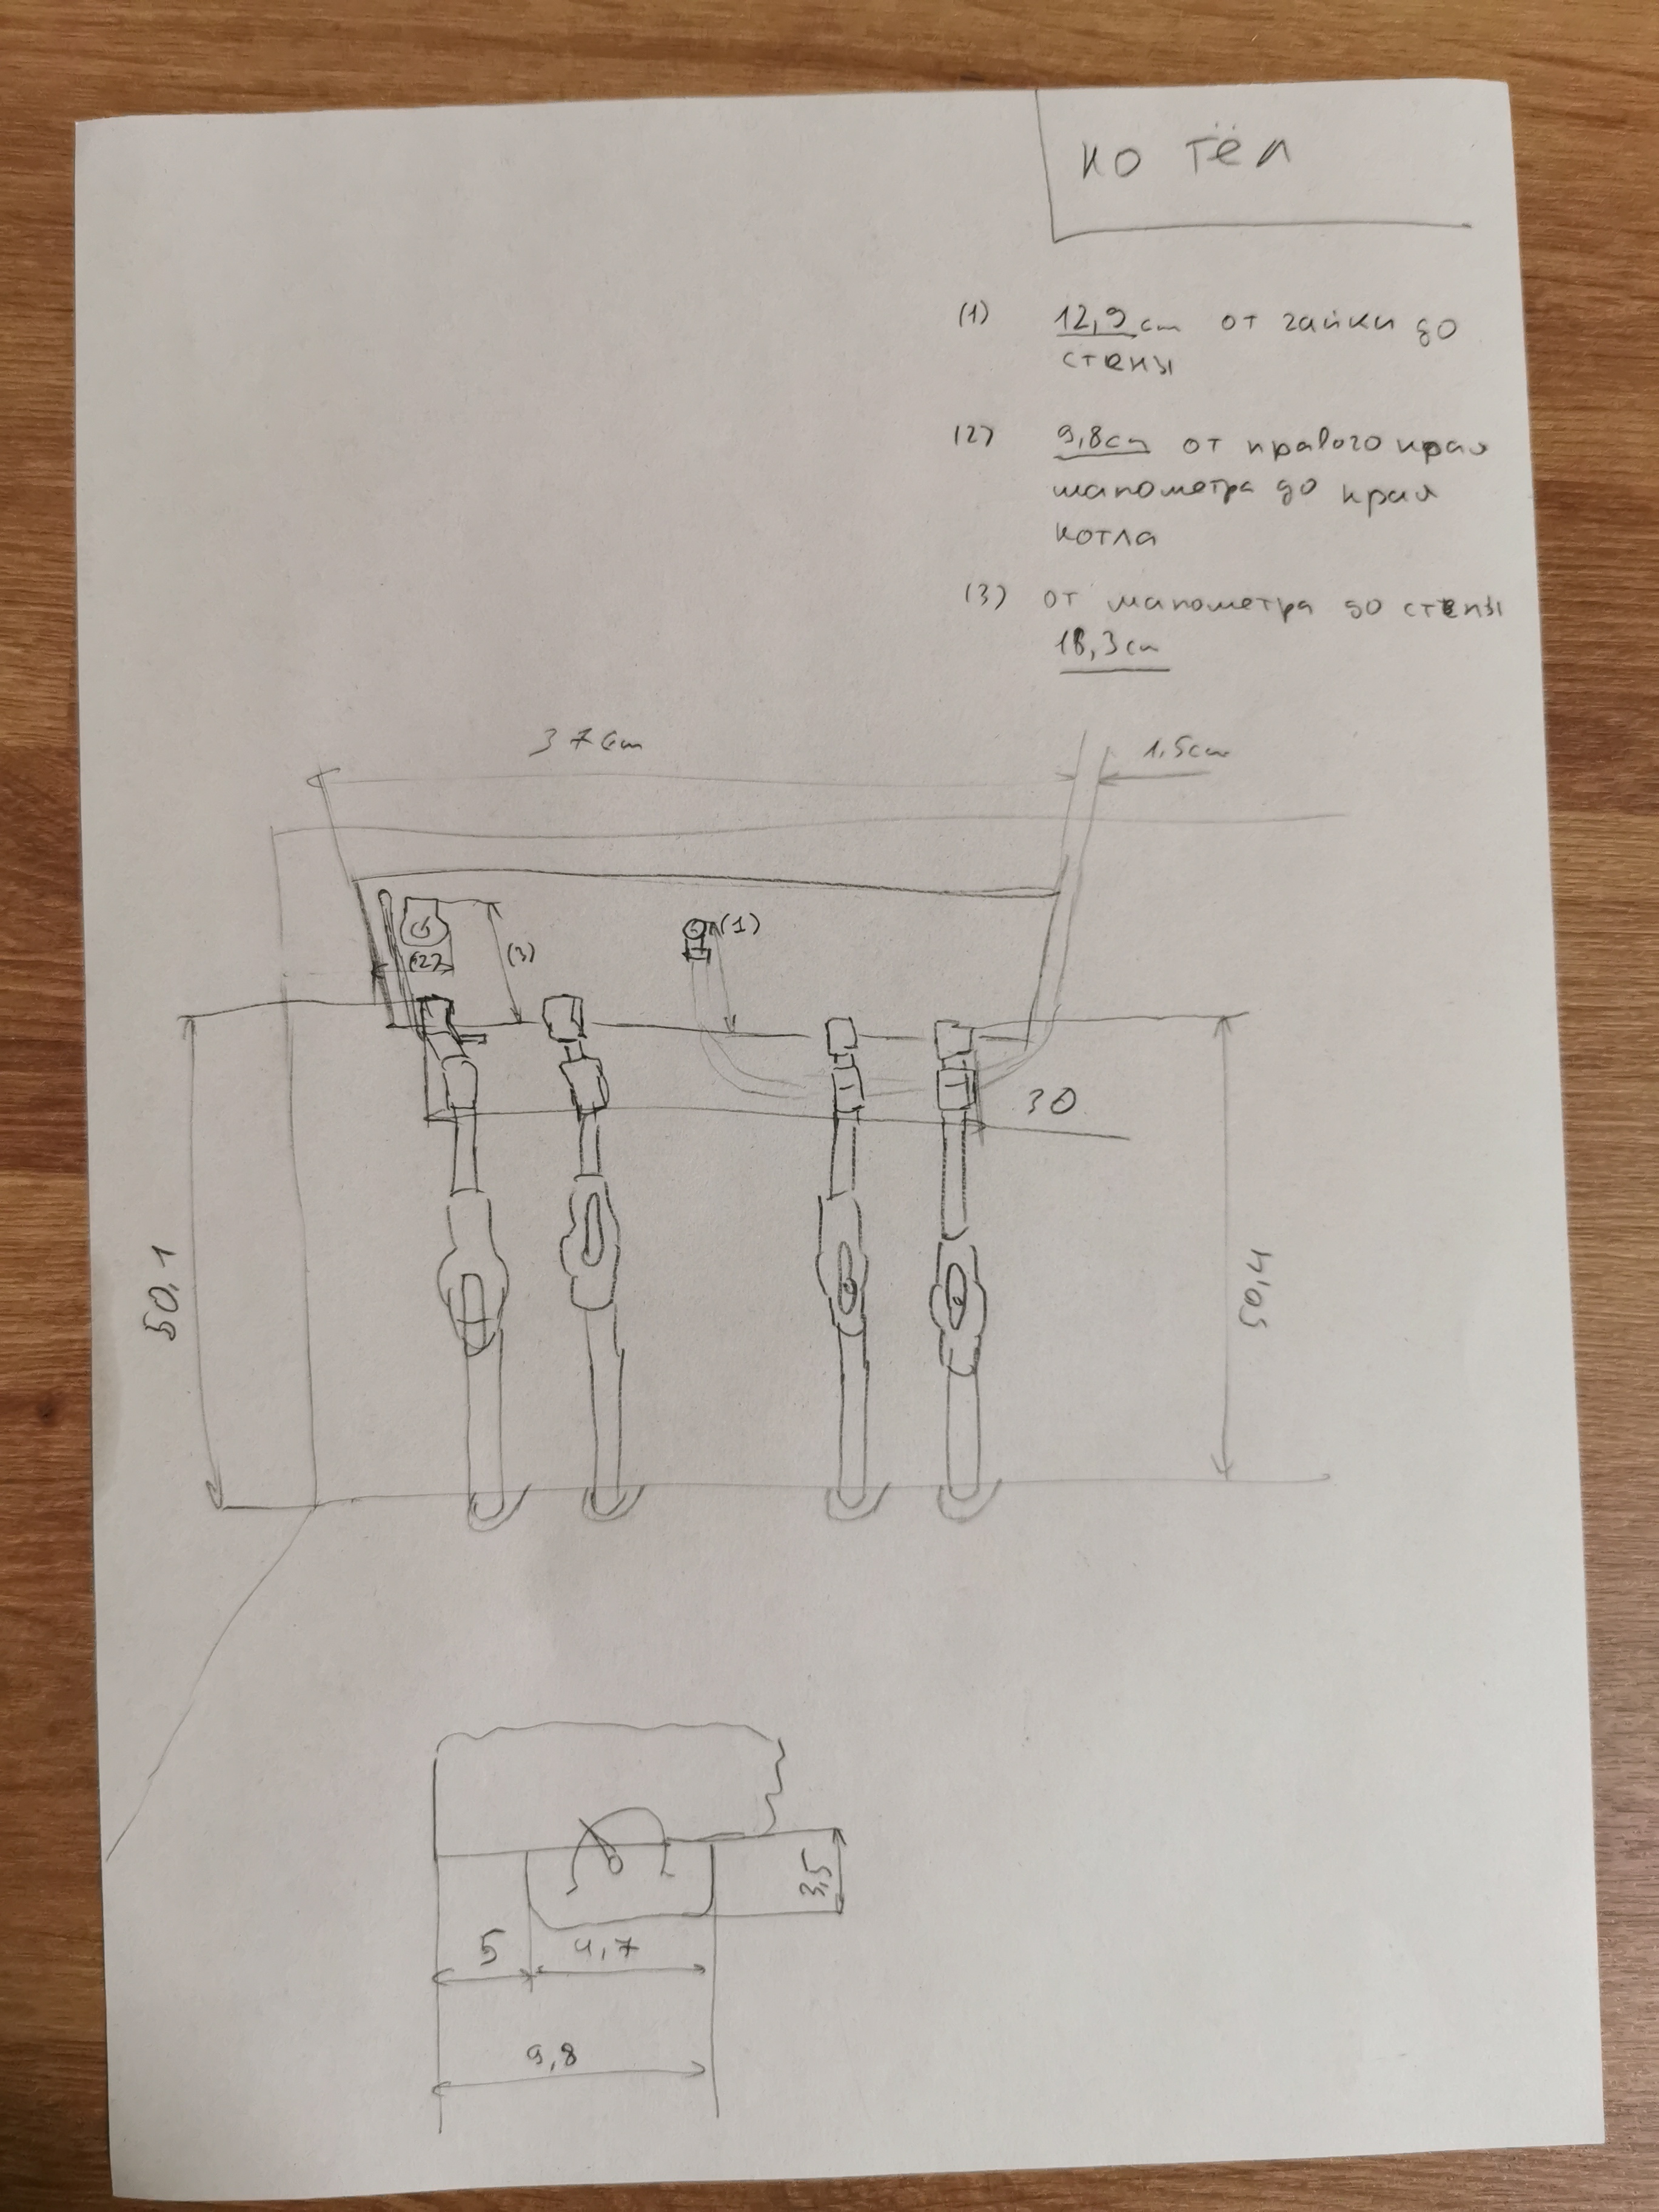 котёл
(1) 12,9 cm от гайки до
стены
(2) 9,8 cm от правого края
манометра до края
котла
(3) от манометра до стены
18,3 cm
37 cm
1,5 cm
(1)
(2)
(3)
30
50,1
50,4
3,5
5
4,7
9,8